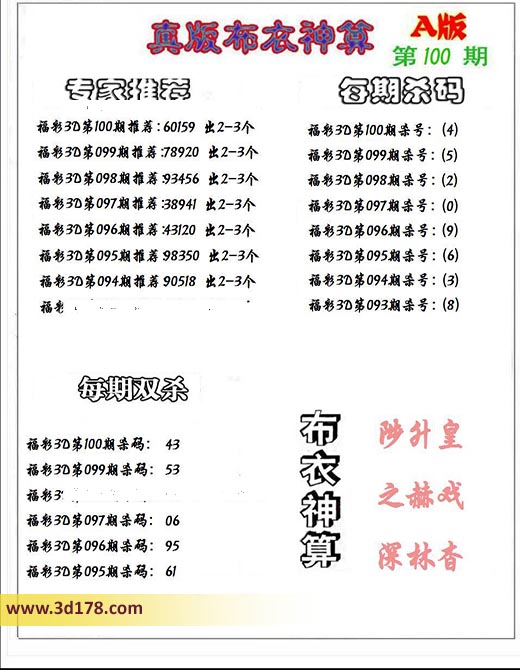 真版布衣神算
A版
第100期
专家推荐
福彩3D第100期推荐:60159 出2-3个
福彩3D第099期推荐:78920 出2-3个
福彩3D第098期推荐:93456 出2-3个
福彩3D第097期推荐:38941 出2-3个
福彩3D第096期推荐:43120 出2-3个
福彩3D第095期推荐:98350 出2-3个
福彩3D第094期推荐:90518 出2-3个
福彩
每期杀码
福彩3D第100期杀号：(4)
福彩3D第099期杀号：(5)
福彩3D第098期杀号：(2)
福彩3D第097期杀号：(0)
福彩3D第096期杀号：(9)
福彩3D第095期杀号：(6)
福彩3D第094期杀号：(3)
福彩3D第093期杀号：(8)
每期双杀
福彩3D第100期杀码： 43
福彩3D第099期杀码： 53
福彩3D
福彩3D第097期杀码： 06
福彩3D第096期杀码： 95
福彩3D第095期杀码： 61
布衣神算
陟升皇
之赫戏
深林杳
www.3d178.com